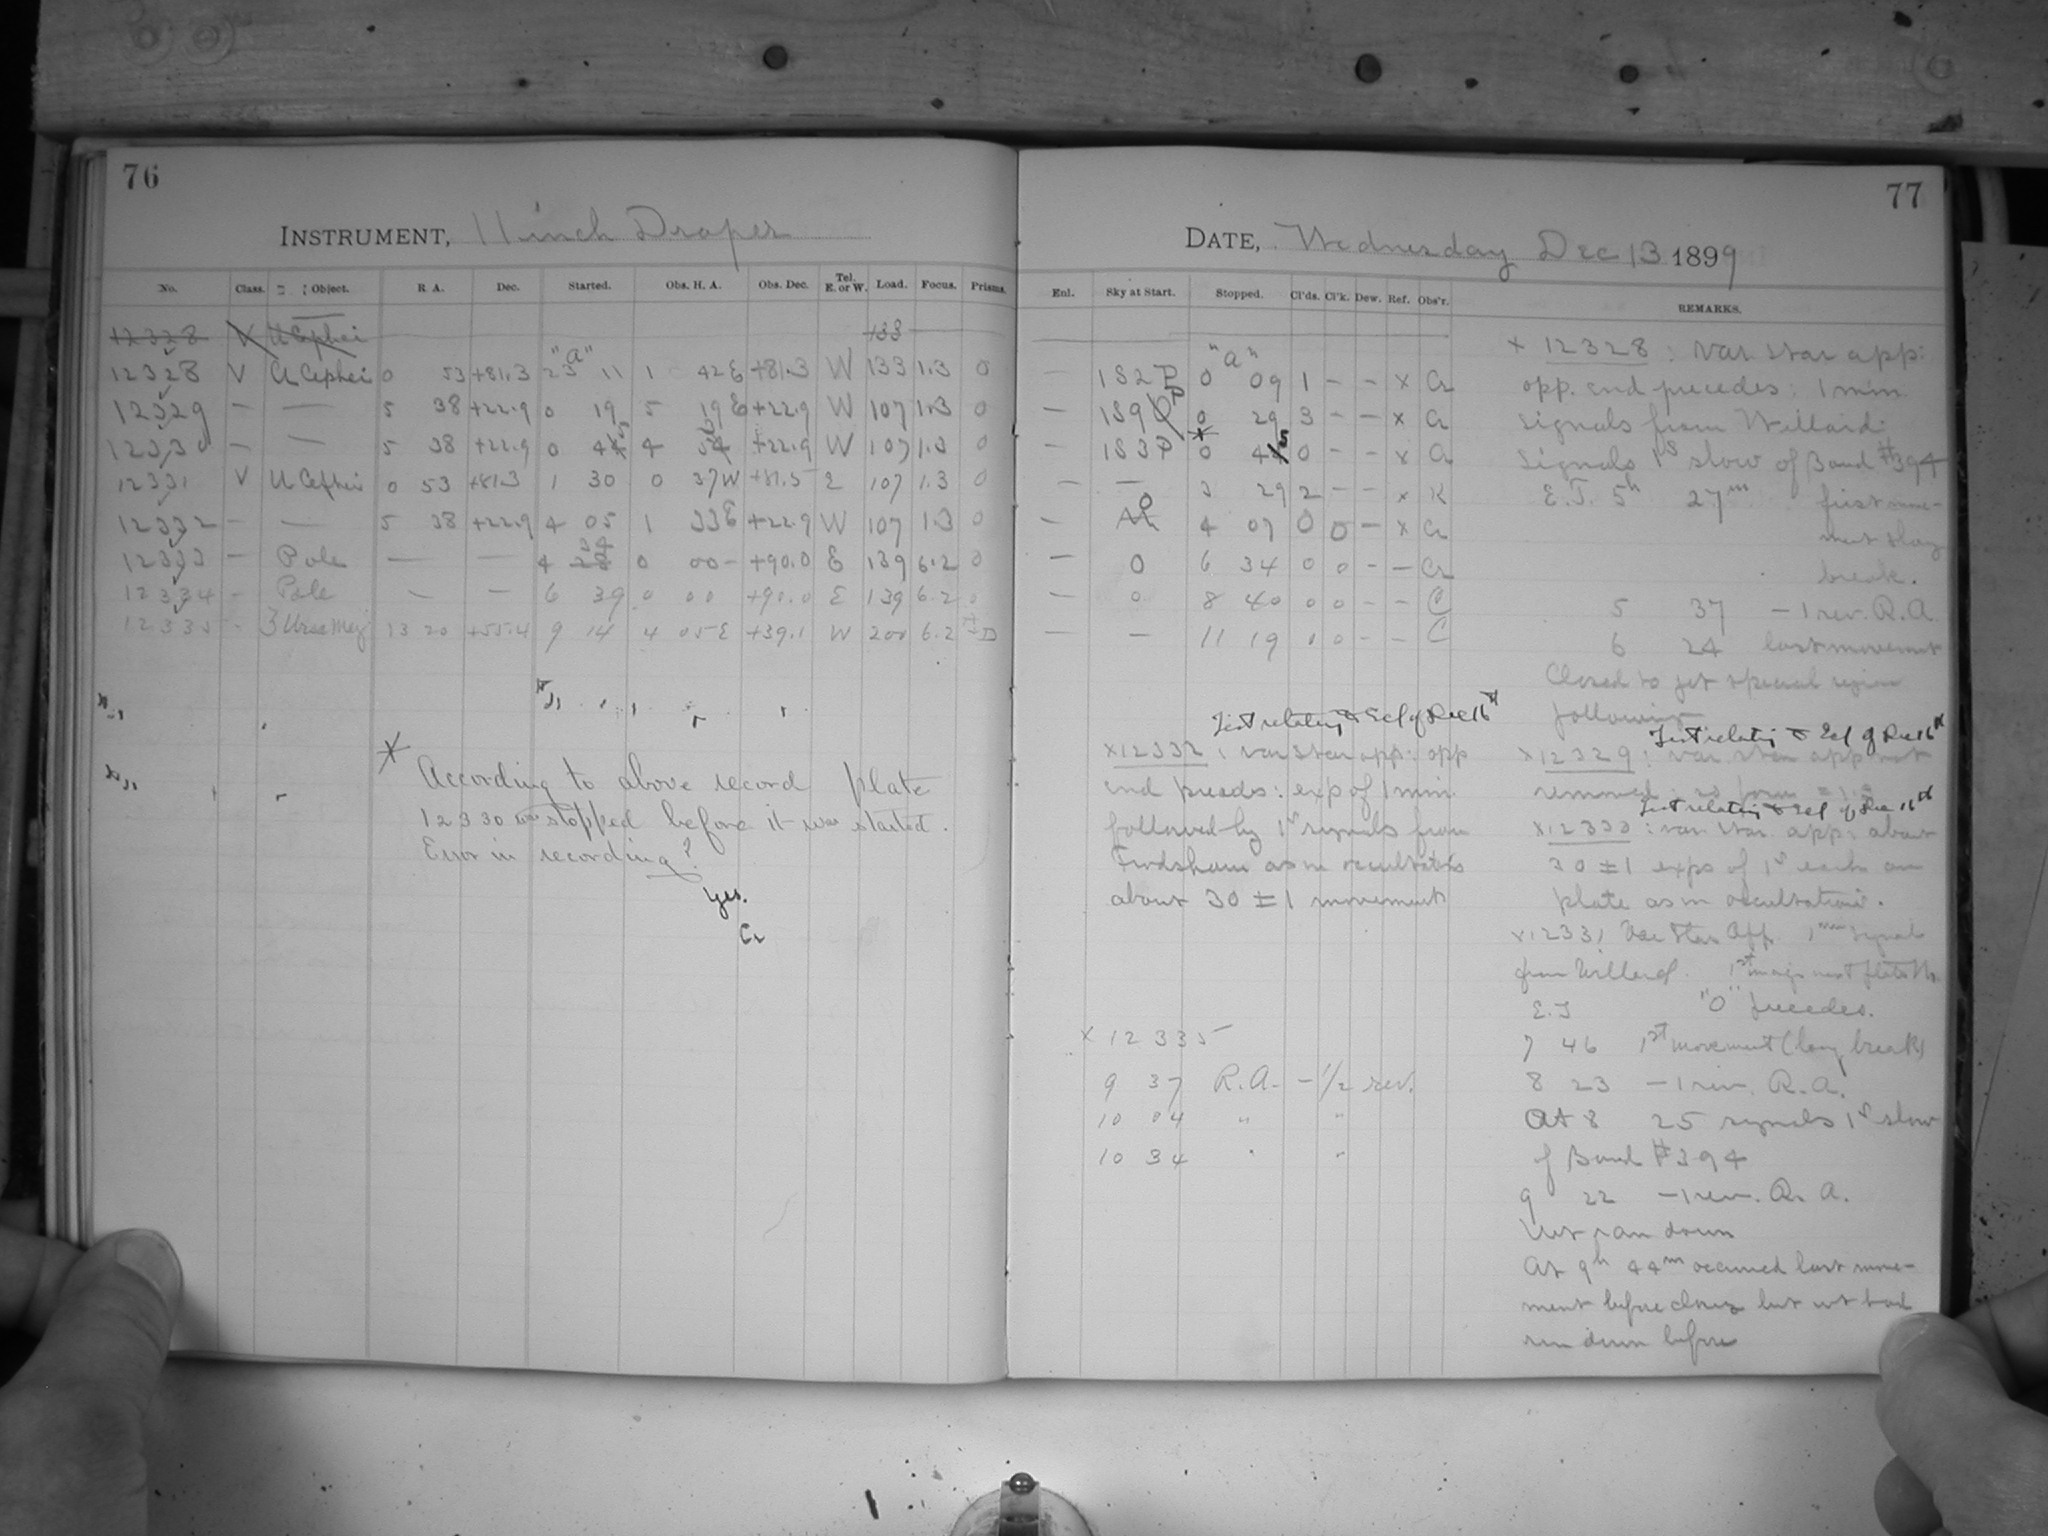 76
INSTRUMENT, 11 inch Draper
No. Class. Object. R. A. Dec. Started. Obs. H. A. Obs. Dec. Tel. E. or W. Load. Focus. Prisms.
12328 V U Cephei 133
"a"
12328 V U Cephei 0 53 +81.3 23 11 1 42 E +81.3 W 133 1.3 0
12329 — — 5 38 +22.9 0 19 5 19 E +22.9 W 107 1.3 0
12330 — — 5 38 +22.9 0 4 4 +22.9 W 107 1.3 0
12331 V U Cephei 0 53 +81.3 1 30 0 37 W +81.5 E 107 1.3 0
12332 — — 5 38 +22.9 4 05 1 33 E +22.9 W 107 1.3 0
12333 — Pole — — 4 34 0 00 – +90.0 E 139 6.2 0
12334 – Pole — — 6 39 0 00 +90.0 E 139 6.2 0
12335 - 3 Ursa Maj 13 20 +55.4 9 14 4 05 E +39.1 W 200 6.2 D
* According to above record plate
12330 was stopped before it was started.
Error in recording?
Yes.
Cr
77
DATE, Wednesday Dec 13 1899
Enl. Sky at Start. Stopped. Cl'ds. Cl'k. Dew. Ref. Obs'r. REMARKS.
"a"
— 1S2P 0 09 1 – – x Cr
— 1S9P 0 29 3 – – x Cr
— 1S3P * 0 45 0 – – x Cr
— — 3 29 2 – – x K
— 0 4 07 0 0 – x Cr
— 0 6 34 0 0 – – Cr
— 0 8 40 0 0 – – C
— — 11 19 0 0 – – C
Test relating to Ecl of Dec 16th
x12332 : var star app: opp
end precedes: exp of 1 min
followed by 1s signals from
Frodsham as in occultations
about 30 ± 1 movements
x 12335
9 37 R.A. – 1/2 rev.
10 04 " "
10 34 " "
x 12328 : var. star app:
opp. end precedes: 1 min
signals from Willard:
Signals 1s slow of Bond #394
E.T. 5h 27m first move-
ment long
break.
5 37 – 1 rev. R.A.
6 24 last movement
Closed to get special region
following
Test relating to Ecl of Dec 16th
x12329 : var. star app not
removed:
Test relating to Ecl of Dec 16th
x12333 : var. star. app: about
30 ± 1 exps of 1s each on
plate as in occultations.
x12331 Var Star App. 1min signals
from Willard. 1st image next plate No.
E.T "0" precedes.
7 46 1st movement (long break)
8 23 – 1 rev. R.A.
At 8 25 signals 1s slow
of Bond #394
9 22 – 1 rev. R. A.
Wt ran down
At 9h 44m occurred last move-
ment before closing but wt had
run down before